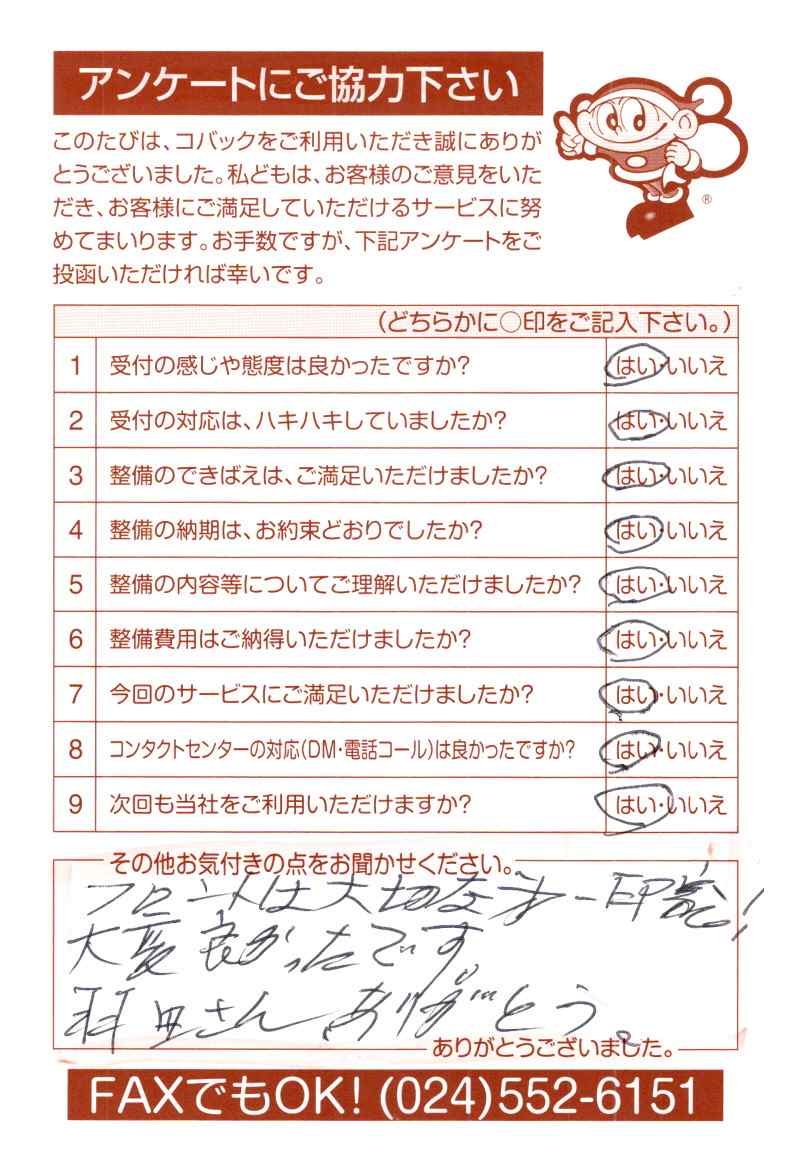 アンケートにご協力下さい
このたびは、コバックをご利用いただき誠にありが
とうございました。私どもは、お客様のご意見をいた
だき、お客様にご満足していただけるサービスに努
めてまいります。お手数ですが、下記アンケートをご
投函いただければ幸いです。
®
(どちらかに○印をご記入下さい。)
1 受付の感じや態度は良かったですか? はい・いいえ
2 受付の対応は、ハキハキしていましたか? はい・いいえ
3 整備のできばえは、ご満足いただけましたか? はい・いいえ
4 整備の納期は、お約束どおりでしたか? はい・いいえ
5 整備の内容等についてご理解いただけましたか? はい・いいえ
6 整備費用はご納得いただけましたか? はい・いいえ
7 今回のサービスにご満足いただけましたか? はい・いいえ
8 コンタクトセンターの対応(DM・電話コール)は良かったですか? はい・いいえ
9 次回も当社をご利用いただけますか? はい・いいえ
その他お気付きの点をお聞かせください。
フロントは大切な 一印象!
大変良かったです。
田さんありがとう。
ありがとうございました。
FAXでもOK! (024)552-6151